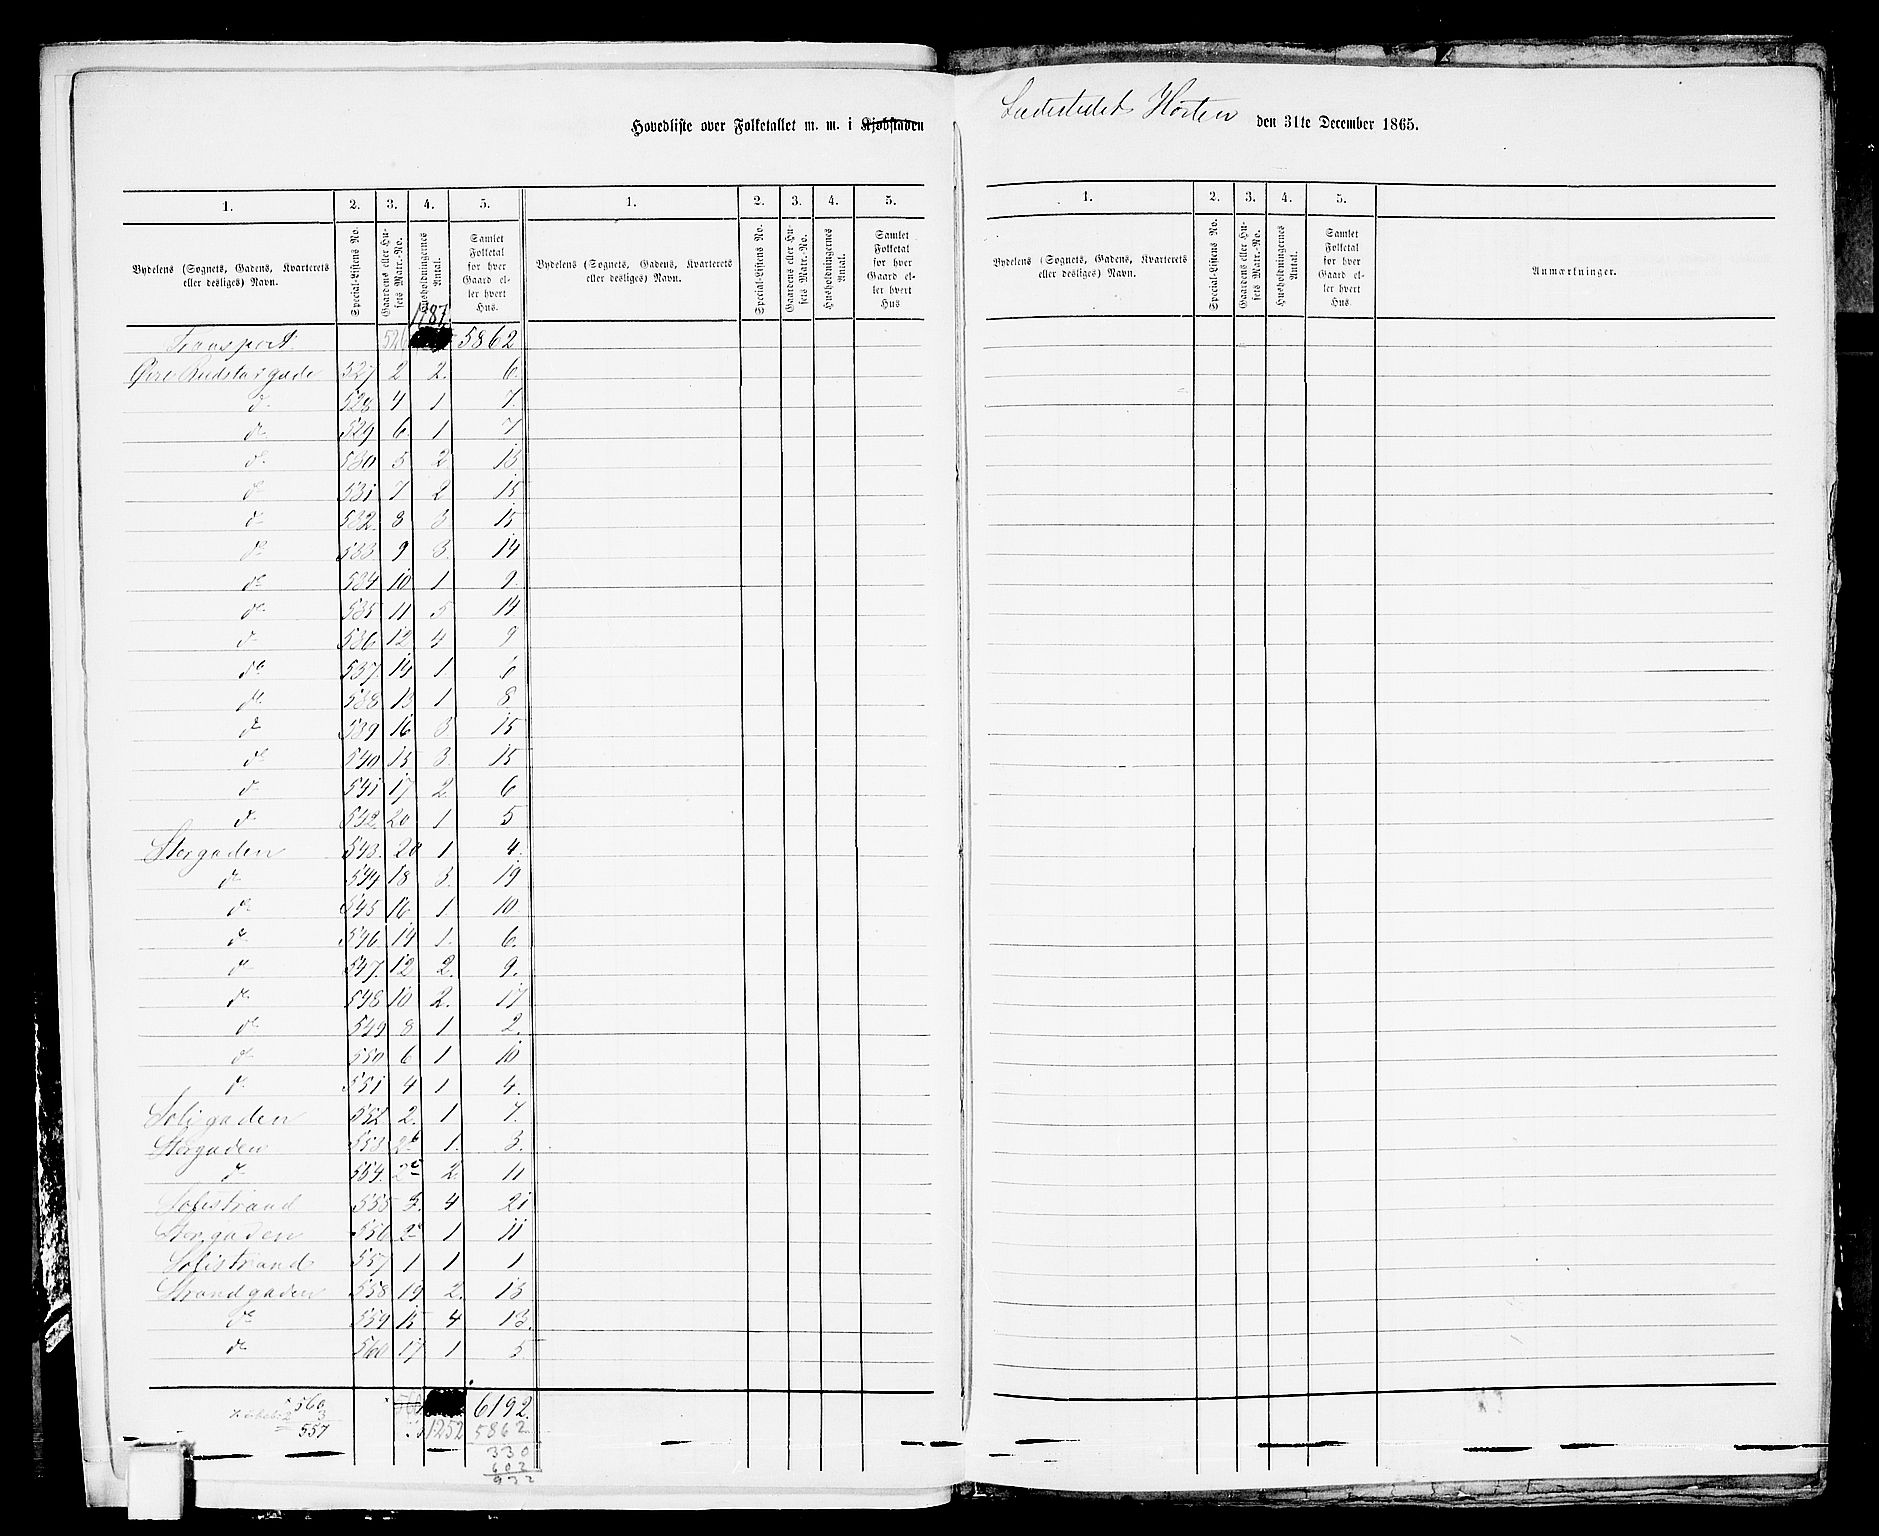 Hovedliste over Folketallet m. m. i Kjøbstaden Ladestedet Horten den 31te December 1865.
1. 2. 3. 4. 5. 1. 2. 3. 4. 5. 1. 2. 3. 4. 5.
Bydelens (Sognets, Gadens, Kvarterets eller desliges) Navn. Special-Listens No. Gaardens eller Husets Matr.-No. Husholdningernes Antal. Samlet Folketal for hver Gaard eller hvert Hus.
Bydelens (Sognets, Gadens, Kvarterets eller desliges) Navn. Special-Listens No. Gaardens eller Husets Matr.-No. Husholdningernes Antal. Samlet Folketal for hver Gaard eller hvert Hus
Bydelens (Sognets, Gadens, Kvarterets eller desliges) Navn. Special-Listens No. Gaardens eller Husets Matr.-No. Husholdningernes Antal. Samlet Folketal for hver Gaard eller hvert Hus. Anmærkninger.
1187.
Transport 526 5862
527 2 2. 6.
do 528 4 1 7.
do 529 6. 1 7
do 530 5 2 13
do 531 7 2 15
do 532. 8 3 15
do 533 9 3. 14
do 534 10 1 9.
do 535 11 5 14
do 536 12 4 9
do 537. 14 1
do 538 13 1 8
do 539 16 3 15
do 540 15 3. 15
do 541 17 2 6
do 542. 20 1 5
Stergaden 543. 20 1 4.
do 544 18 3. 19
do 545 16 1 10.
do 546 14 1. 6.
do 547. 12 2. 9.
do 548 10 2. 17
do 549 8 1 2.
do 550 6 1 10
do 551 4 1 4.
552 2. 1 7.
Stergaden 553 2b 1. 3.
do 554. 2c 2. 11
555 3. 4 21
Stergaden 556 1 11
557 1 1 1
Strandgaden 558 19 2. 13
do 559 15 4 13.
do 560 17 1 5
560 560 6192.
3 1252 5862
557 330
602
932